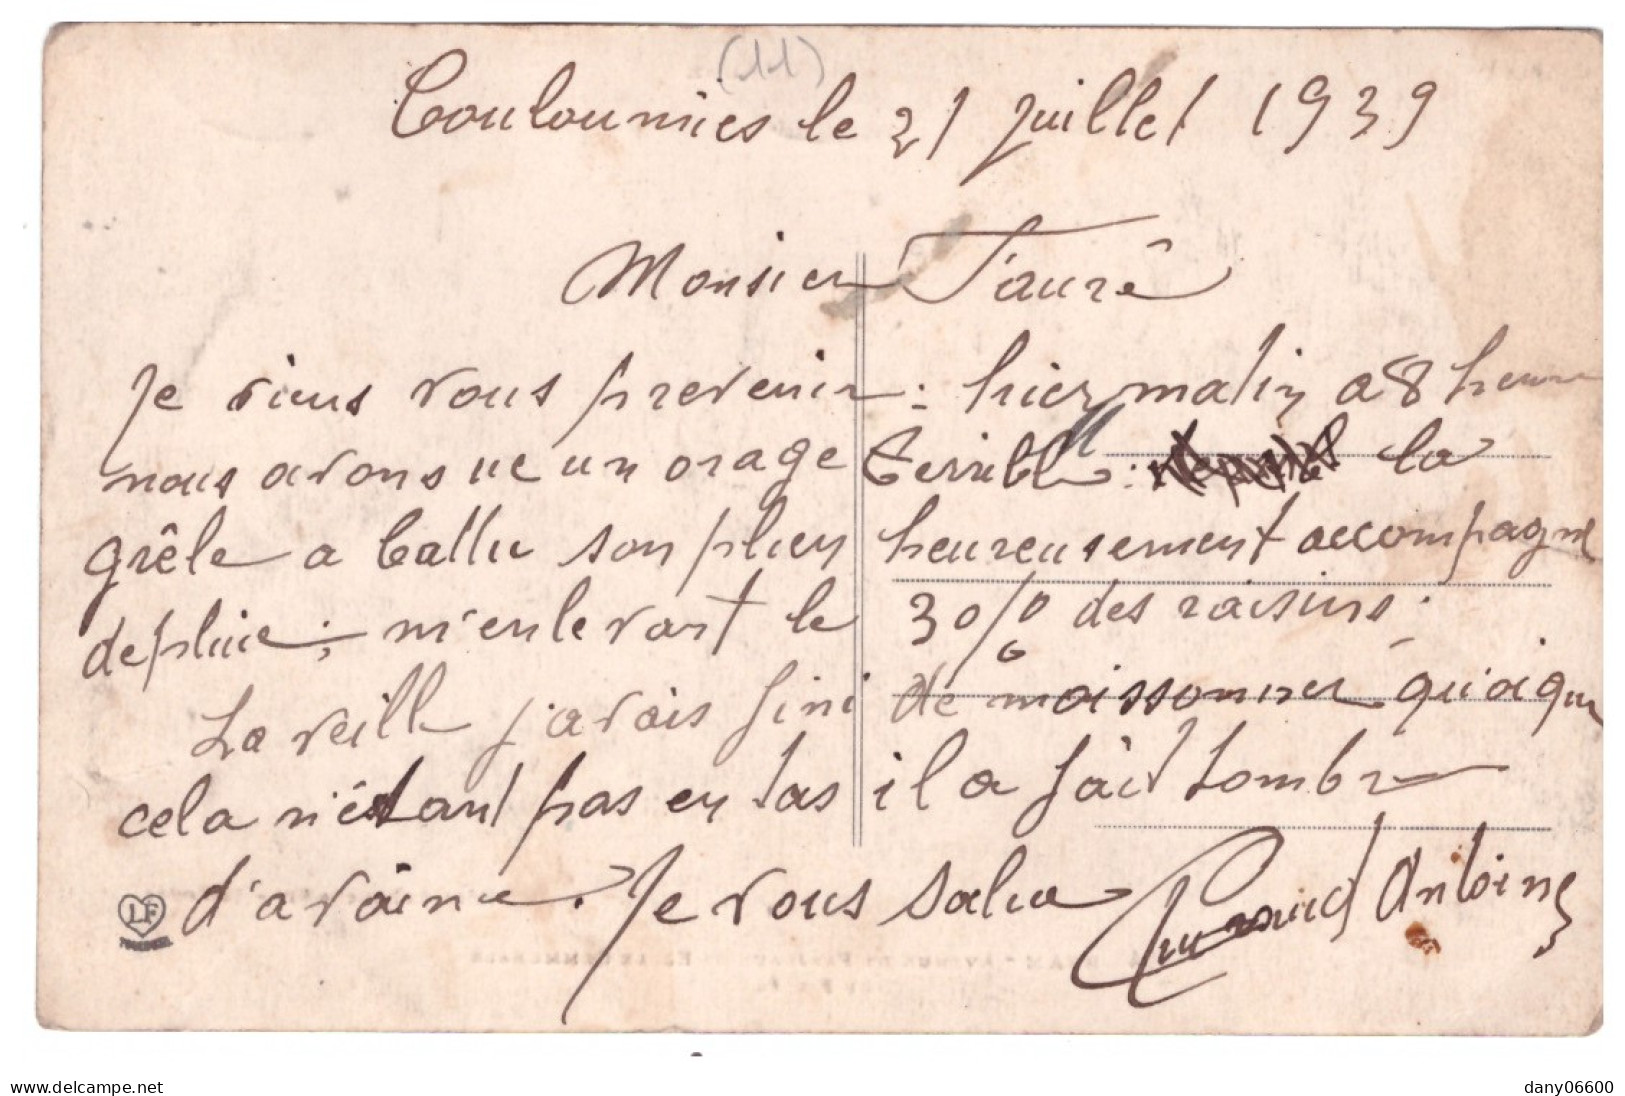 (11)
Couloumies le 21 Juillet 1939
Monsieur Fauré
Je viens vous prevenir : hier matin a 8 heure
nous avons ue un orage terrible : la
grêle a battu son plien heureusement accompagné
de pluie ; m'enlevant le 30% des raisins ;
La veille j'avais fini de moissonner quoique
cela n'étant pas en tas il a fait tombé
d'avoine. Je vous salue Antoine
LF
www.delcampe.net
dany06600